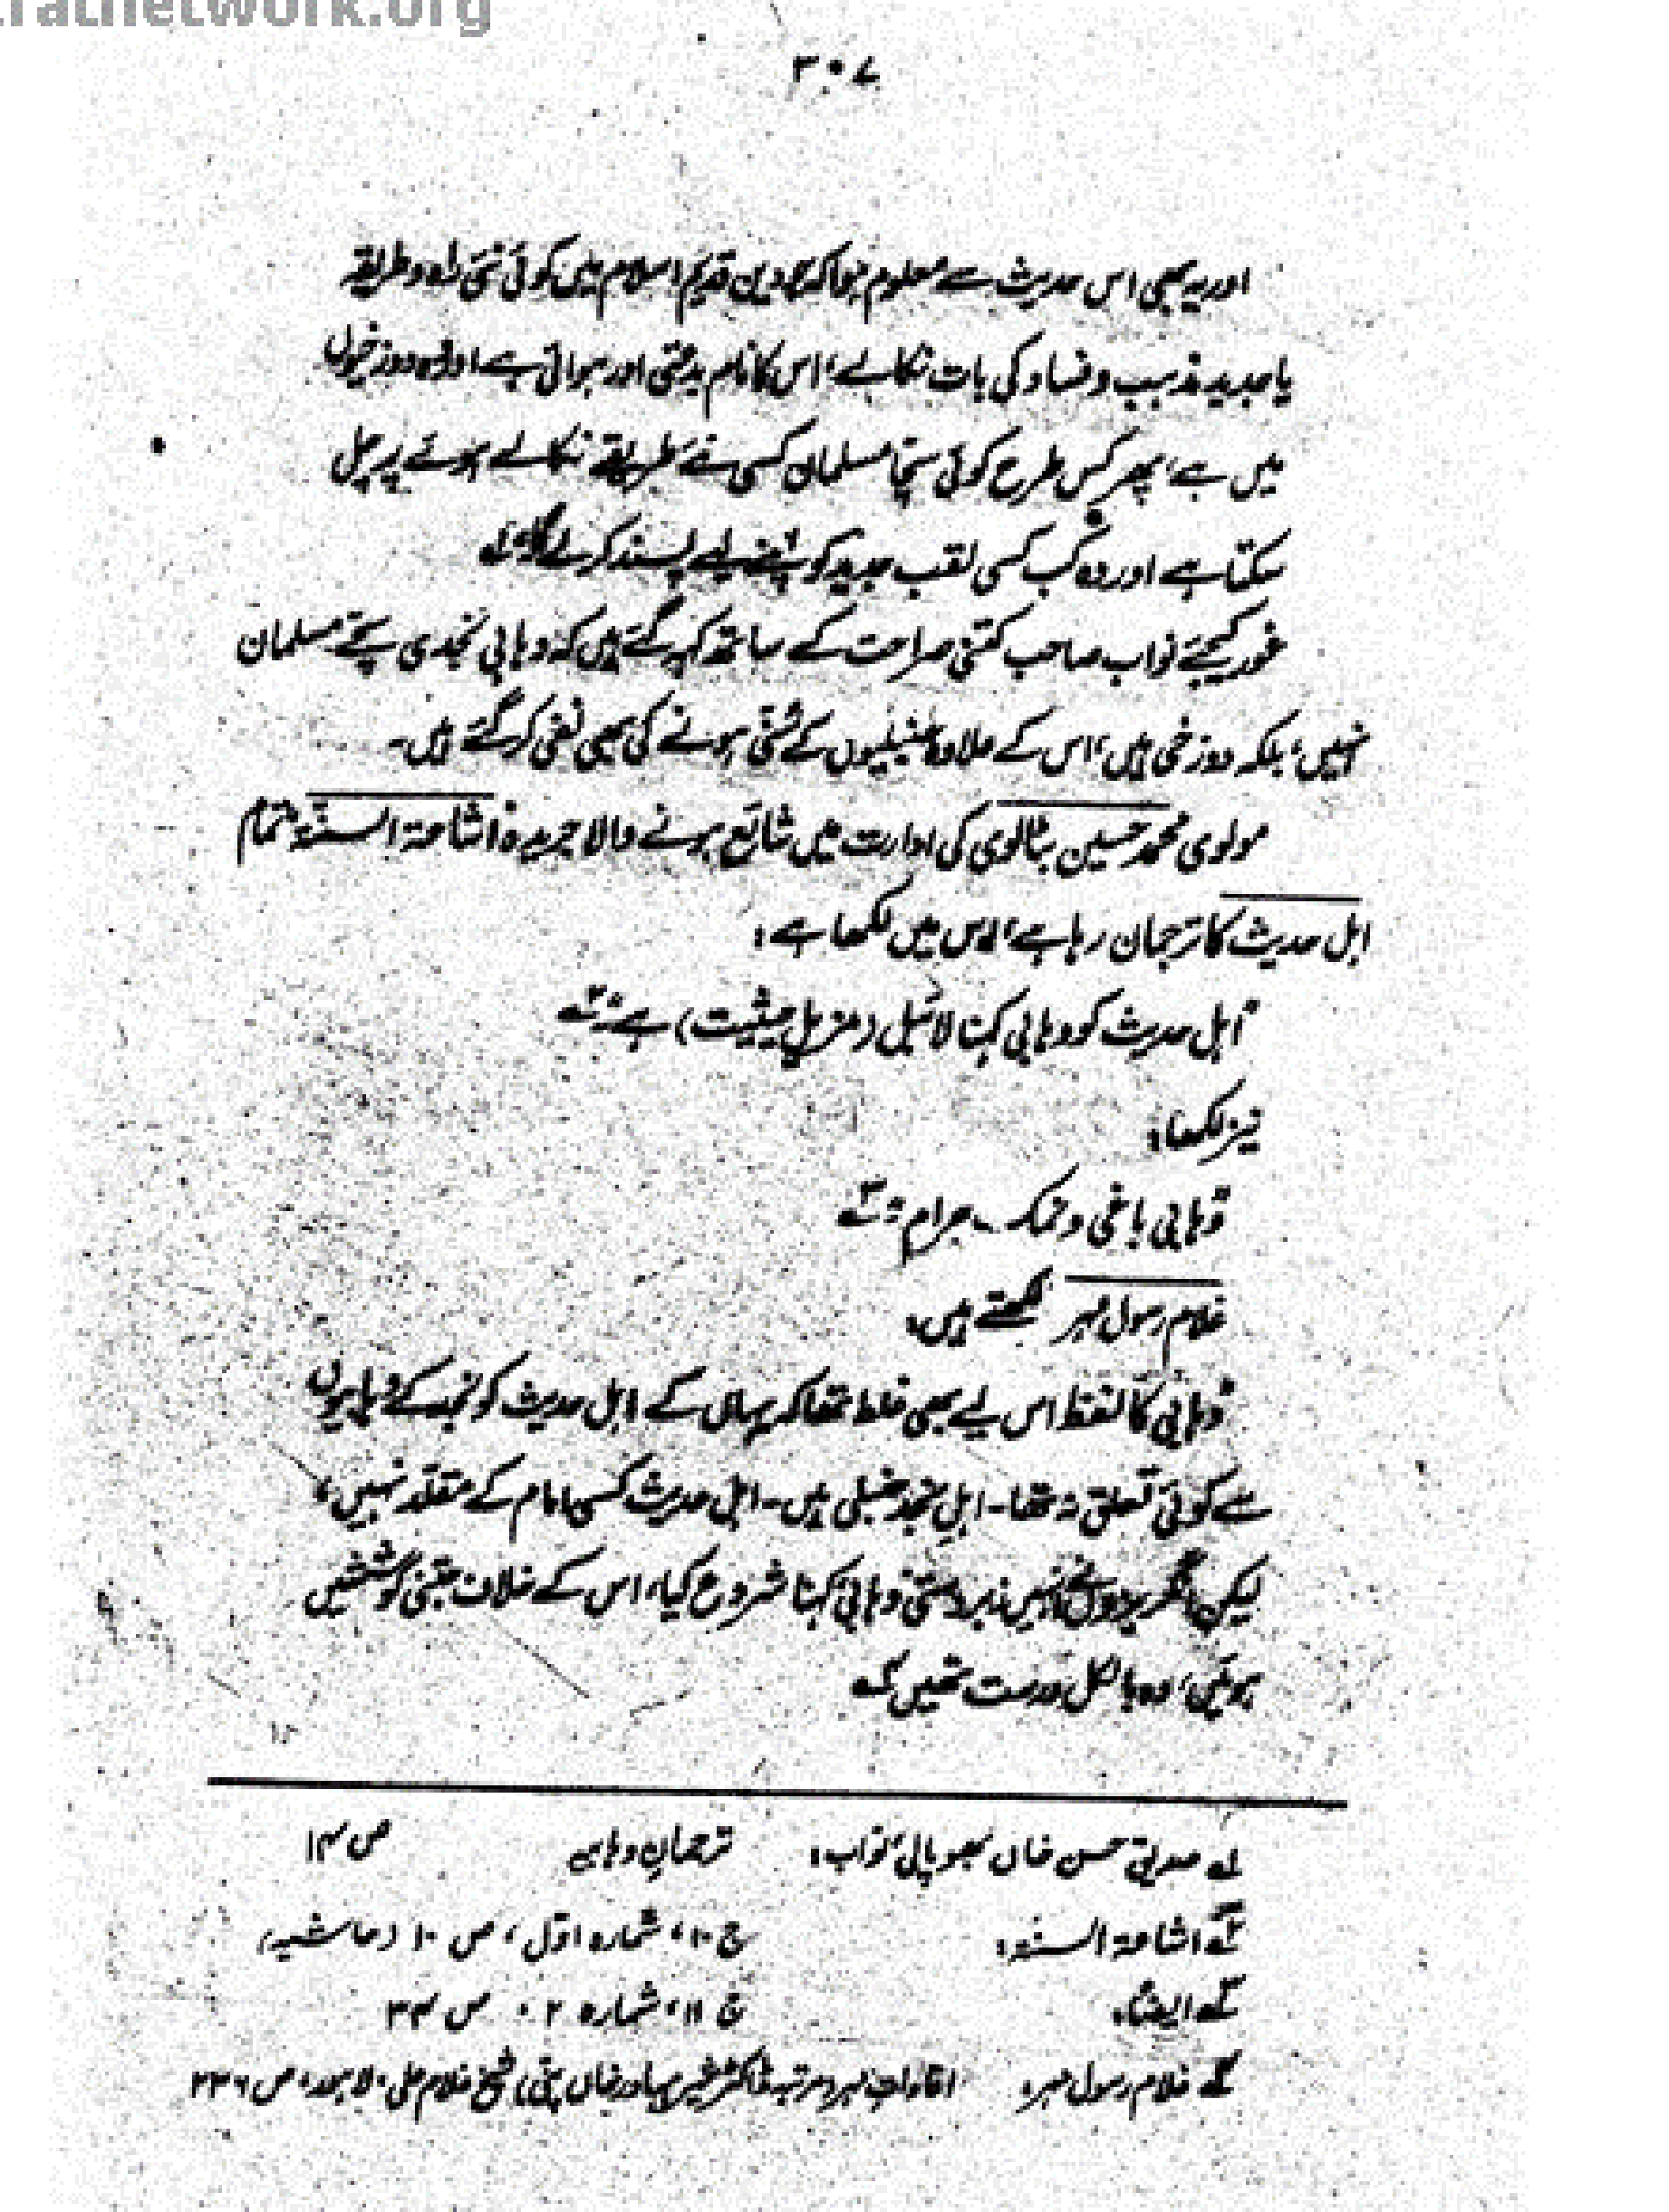 ratnetwork.org
۳۰۷
اور یہ بھی اس حدیث سے معلوم ہوا کہ جو دین قدیم اسلام میں کوئی نئی راہ و طریقہ
یا جدید مذہب و فساد کی بات نکالے، اس کا نام بدعتی اور ہوائی ہے اور وہ دوزخیوں
میں ہے، پھر کس طرح کوئی سچا مسلمان کسی نئے طریقے نکالے ہوئے پر چل
سکتا ہے اور وہ کب کسی لقب جدید کو اپنے لیے پسند کرے گا؟ لہ
غور کیجئے نواب صاحب کتنی صراحت کے ساتھ کہہ گئے ہیں کہ وہابی نجدی سچے مسلمان
نہیں، بلکہ دوزخی ہیں، اس کے علاوہ حنبلیوں کے سُنّی ہونے کی بھی نفی کر گئے ہیں۔
مولوی محمد حسین بٹالوی کی ادارت میں شائع ہونے والا جریدہ اشاعۃ السنۃ تمام
اہل حدیث کا ترجمان رہا ہے، اس میں لکھا ہے:
"اہل حدیث کو وہابی کہنا لائبل (مزیل حیثیت) ہے" ۲؎
نیز لکھا:
"وہابی باغی و نمک حرام" ۳؎
غلام رسول مہر لکھتے ہیں:
"وہابی کا لفظ اس لیے بھی غلط تھا کہ یہاں کے اہل حدیث کو نجد کے وہابیوں
سے کوئی تعلق نہ تھا۔ اہل نجد حنبلی ہیں۔ اہل حدیث کسی امام کے مقلد نہیں،
لیکن انگریزوں نے انہیں زبردستی وہابی کہنا شروع کیا، اس کے خلاف جتنی کوششیں
ہوئیں، وہ بالکل درست تھیں ۴؎
۱؎ صدیق حسن خاں بھوپالی، نواب: ترجمان وہابیہ ص ۱۴
۲؎ اشاعۃ السنۃ: ج ۱۰، شمارہ اوّل، ص ۱۰ (حاشیہ)
۳؎ ایضاً: ج ۱۱، شمارہ ۲، ص ۳۴
۴؎ غلام رسول مہر: افادات مہر (مرتبہ ڈاکٹر شیر بہادر خاں پنی) شیخ غلام علی، لاہور، ص ۲۳۶